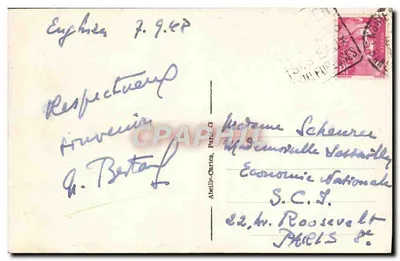 Enghien 7.9.48
Respectueux
souvenir
Abeille-Cartes, Paris
Madame Scheurer
Mademoiselle
Economie Nationale
S.C.I.
22, Av. Roosevelt
PARIS 8e
CPARAMA